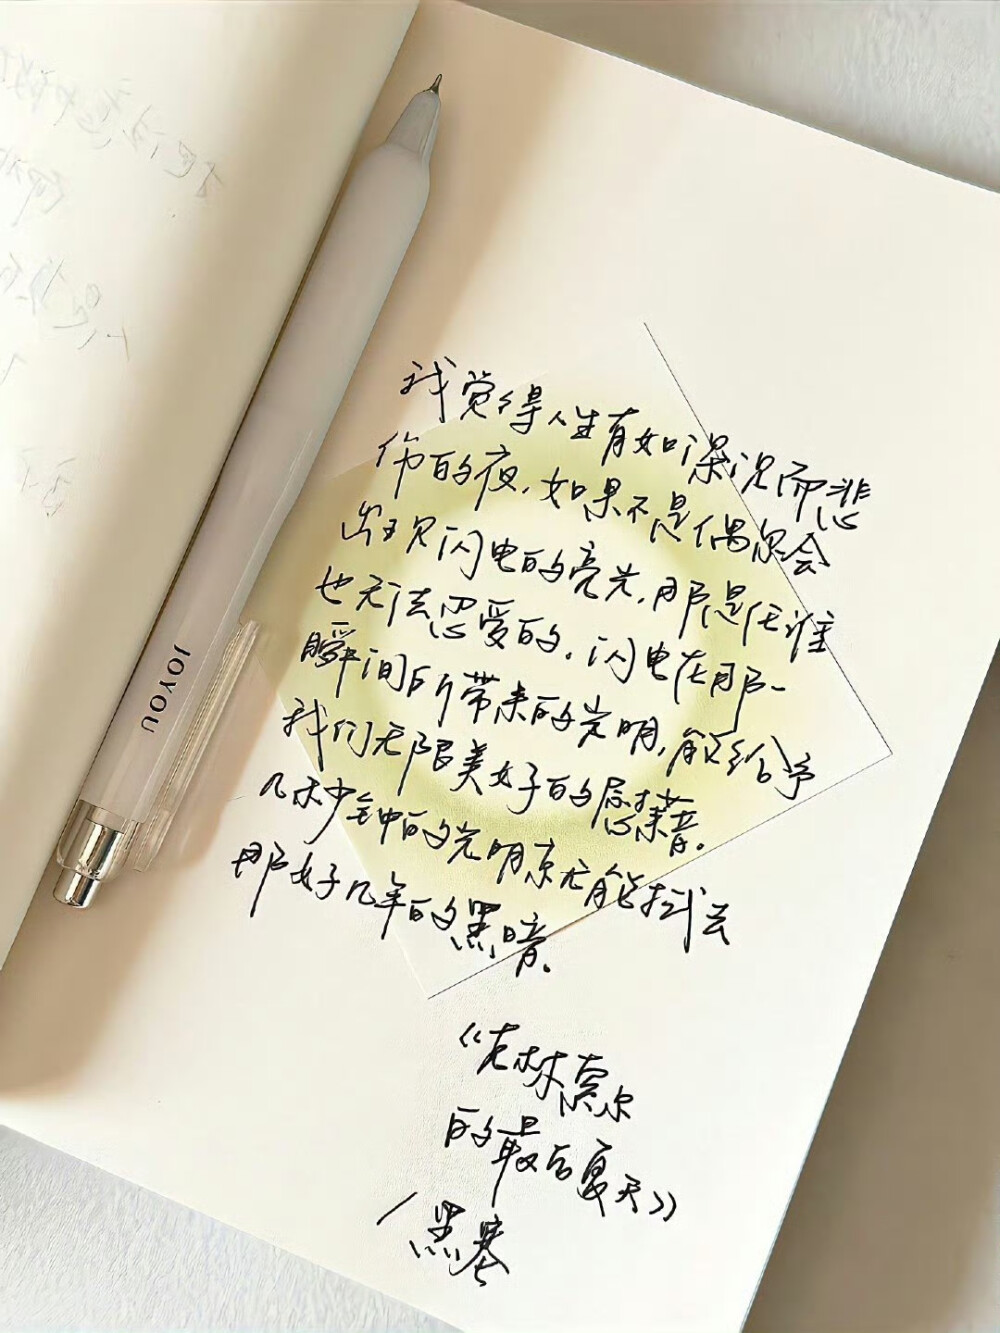 我觉得人生有如深沉而悲
伤的夜,如果不是偶尔会
出现闪电的亮光,那是任谁
也无法忍受的,闪电在那一
瞬间所带来的光明,能给予
我们无限美好的慰藉。
几秒钟的光明就能抹去
那好几年的黑暗。
《克林索尔
的最后夏天》
/黑塞
JOYOU